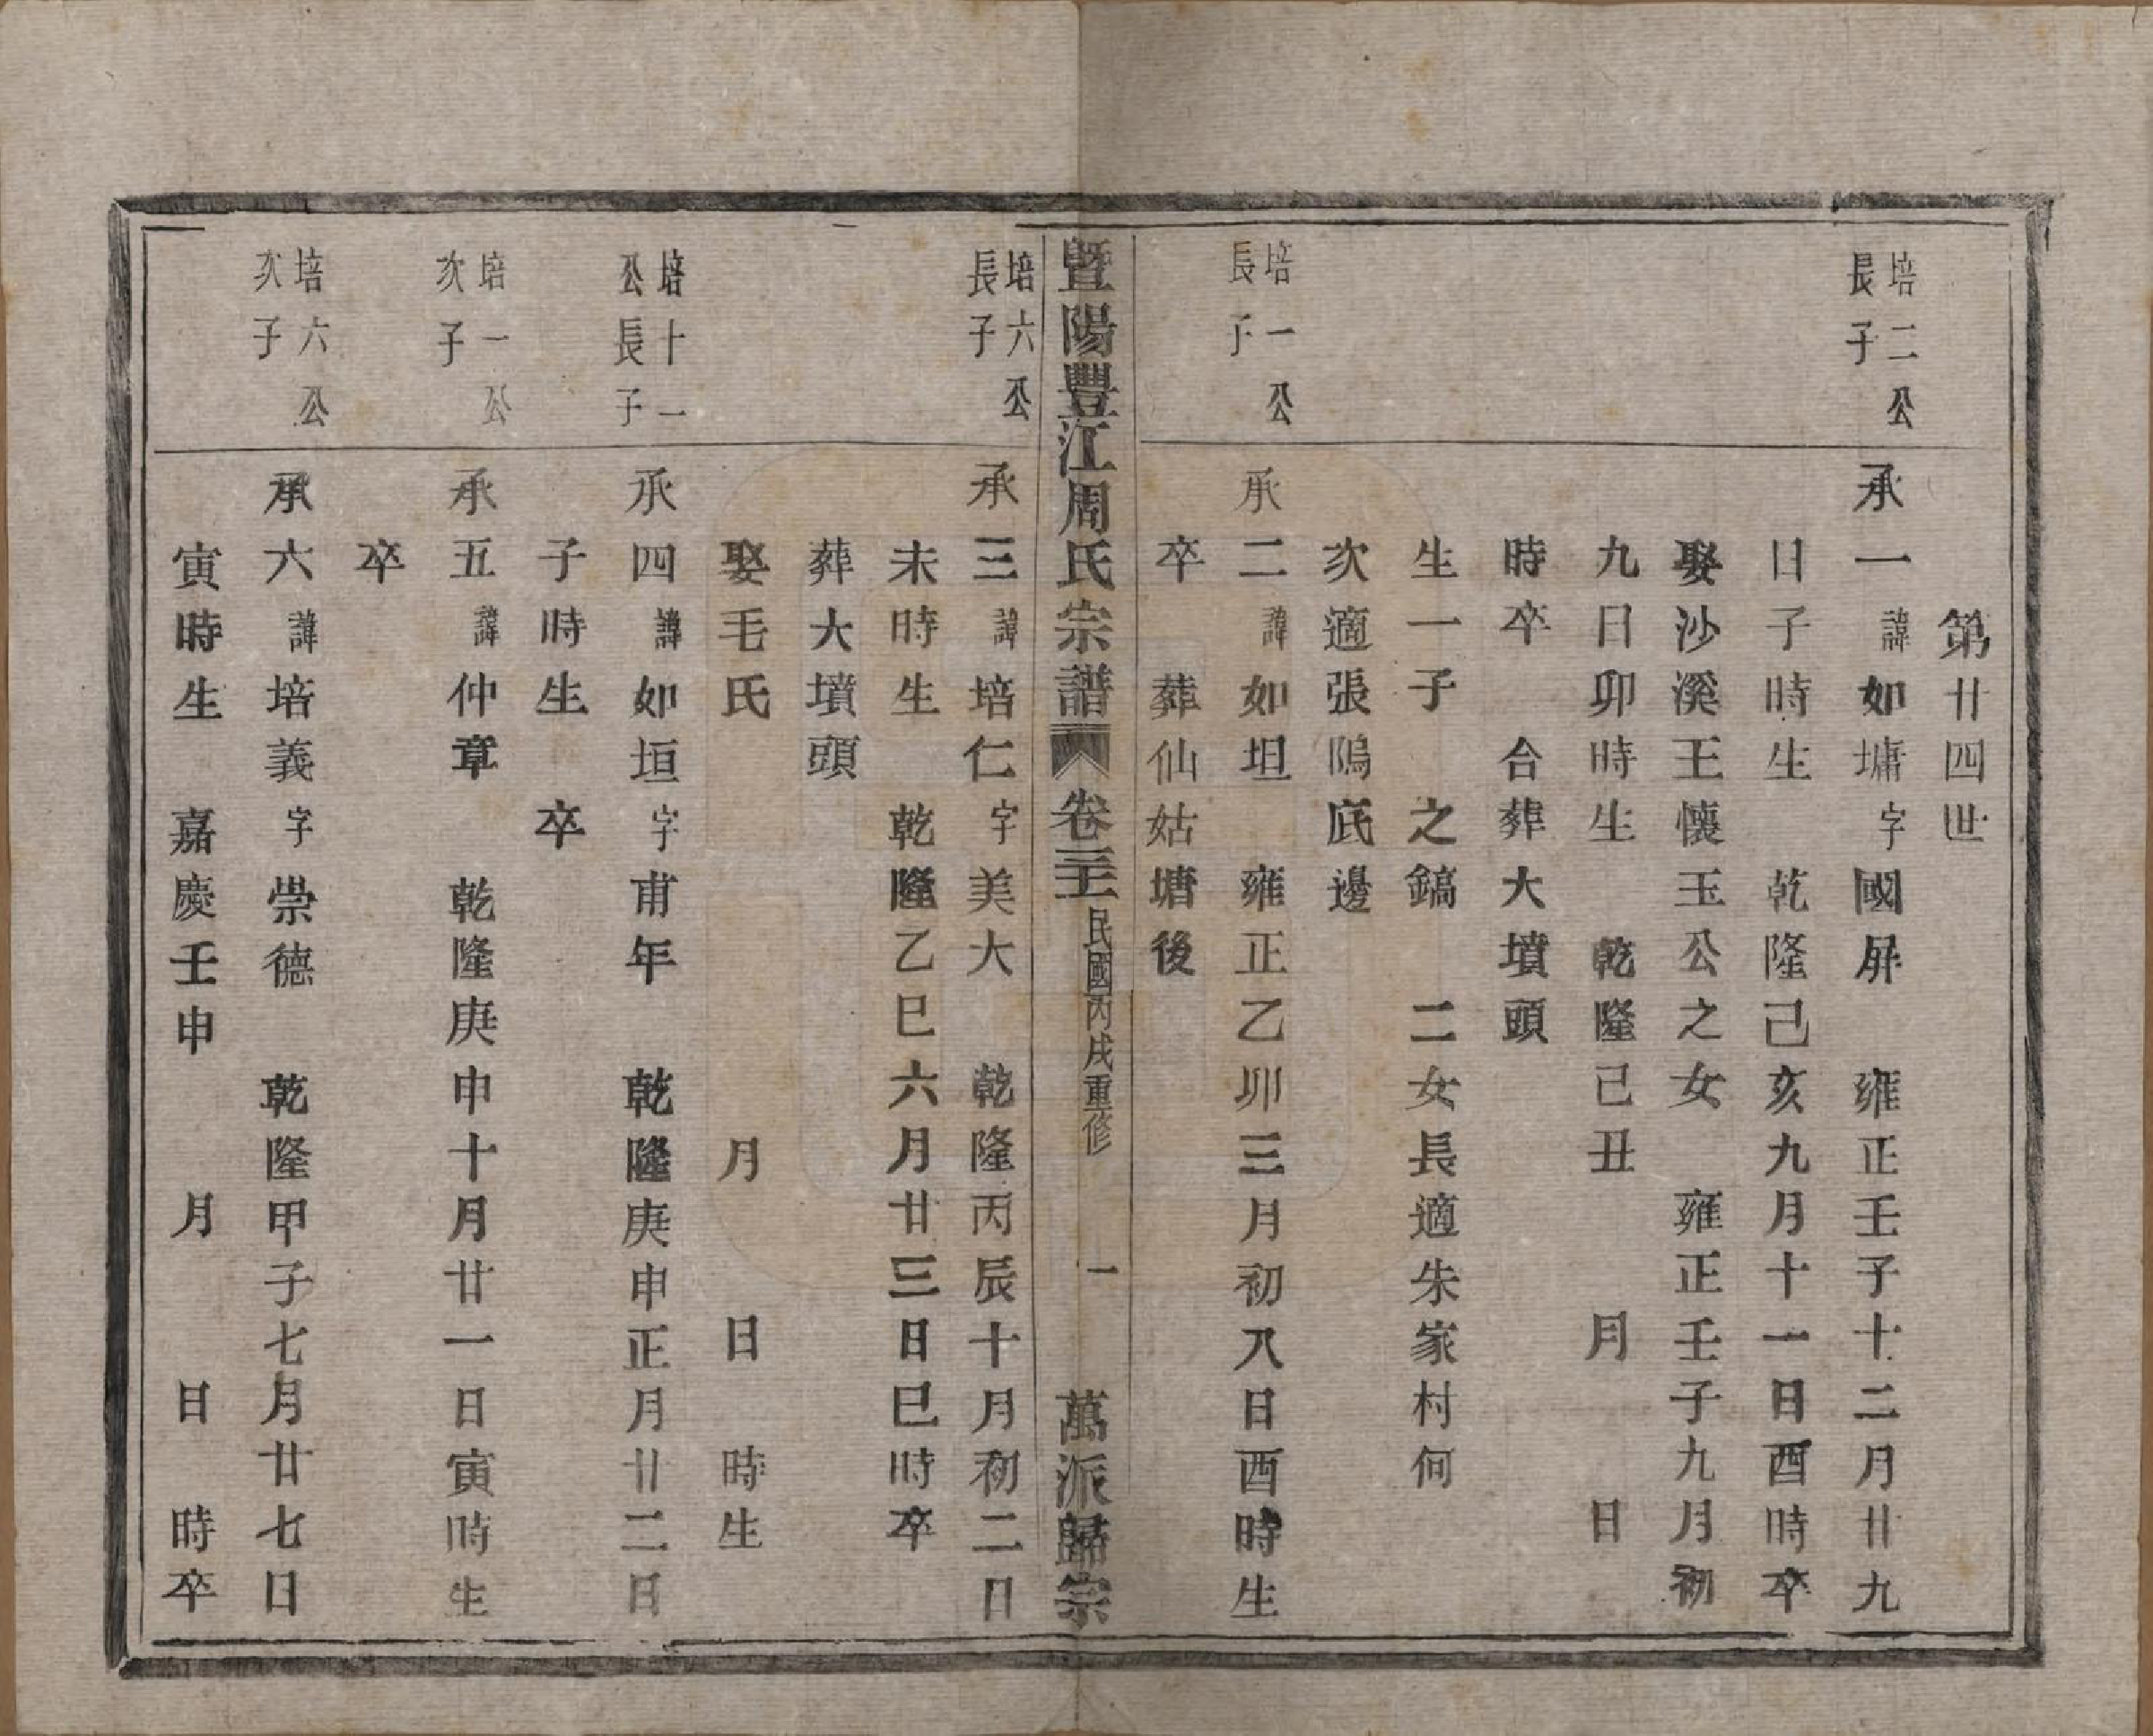 第廿四世
培二公
長子
承一諱如墉字國屏 雍正壬子十二月廿九
日子時生 乾隆己亥九月十一日酉時卒
娶沙溪王懷玉公之女 雍正壬子九月初
九日卯時生 乾隆己丑 月 日
時卒 合葬大墳頭
生一子 之鎬 二女長適朱家村何
次適張隖底邊
培一公
長子
承二諱如坦 雍正乙卯三月初八日酉時生
卒 葬仙姑塘後
暨陽豐江周氏宗譜 卷 民國丙戌重修 一 萬派歸宗
培六公
長子
承三諱培仁字美大 乾隆丙辰十月初二日
未時生 乾隆乙巳六月廿三日巳時卒
葬大墳頭
娶毛氏 月 日 時生
培十一
公長子
承四諱如垣字甫年 乾隆庚申正月廿二日
子時生 卒
培一公
次子
承五諱仲章 乾隆庚申十月廿一日寅時生
卒
培六公
次子
承六諱培義字崇德 乾隆甲子七月廿七日
寅時生 嘉慶壬申 月 日 時卒